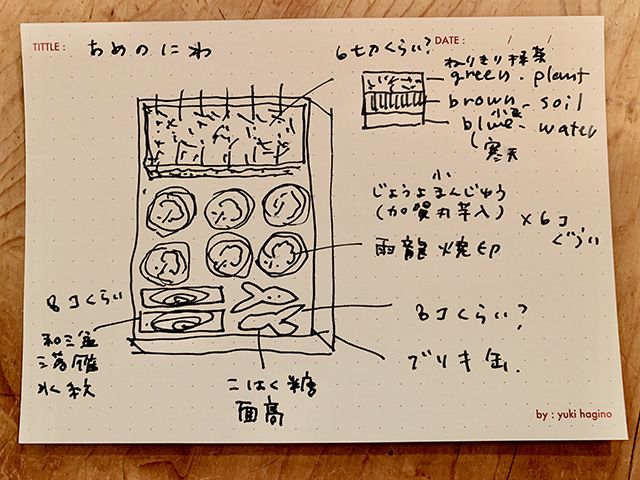 TITTLE :
あめのにわ
DATE : / /
6切くらい?
ねりきり抹茶
green. plant
brown - soil
小豆
blue - water
寒天
小
じょうよまんじゅう
(加賀丸芋入)
×6コ
ぐらい
雨龍 焼印
8コくらい
8コくらい?
和三盆
水紋
ブリキ缶.
こはく糖
面高
by : yuki hagino